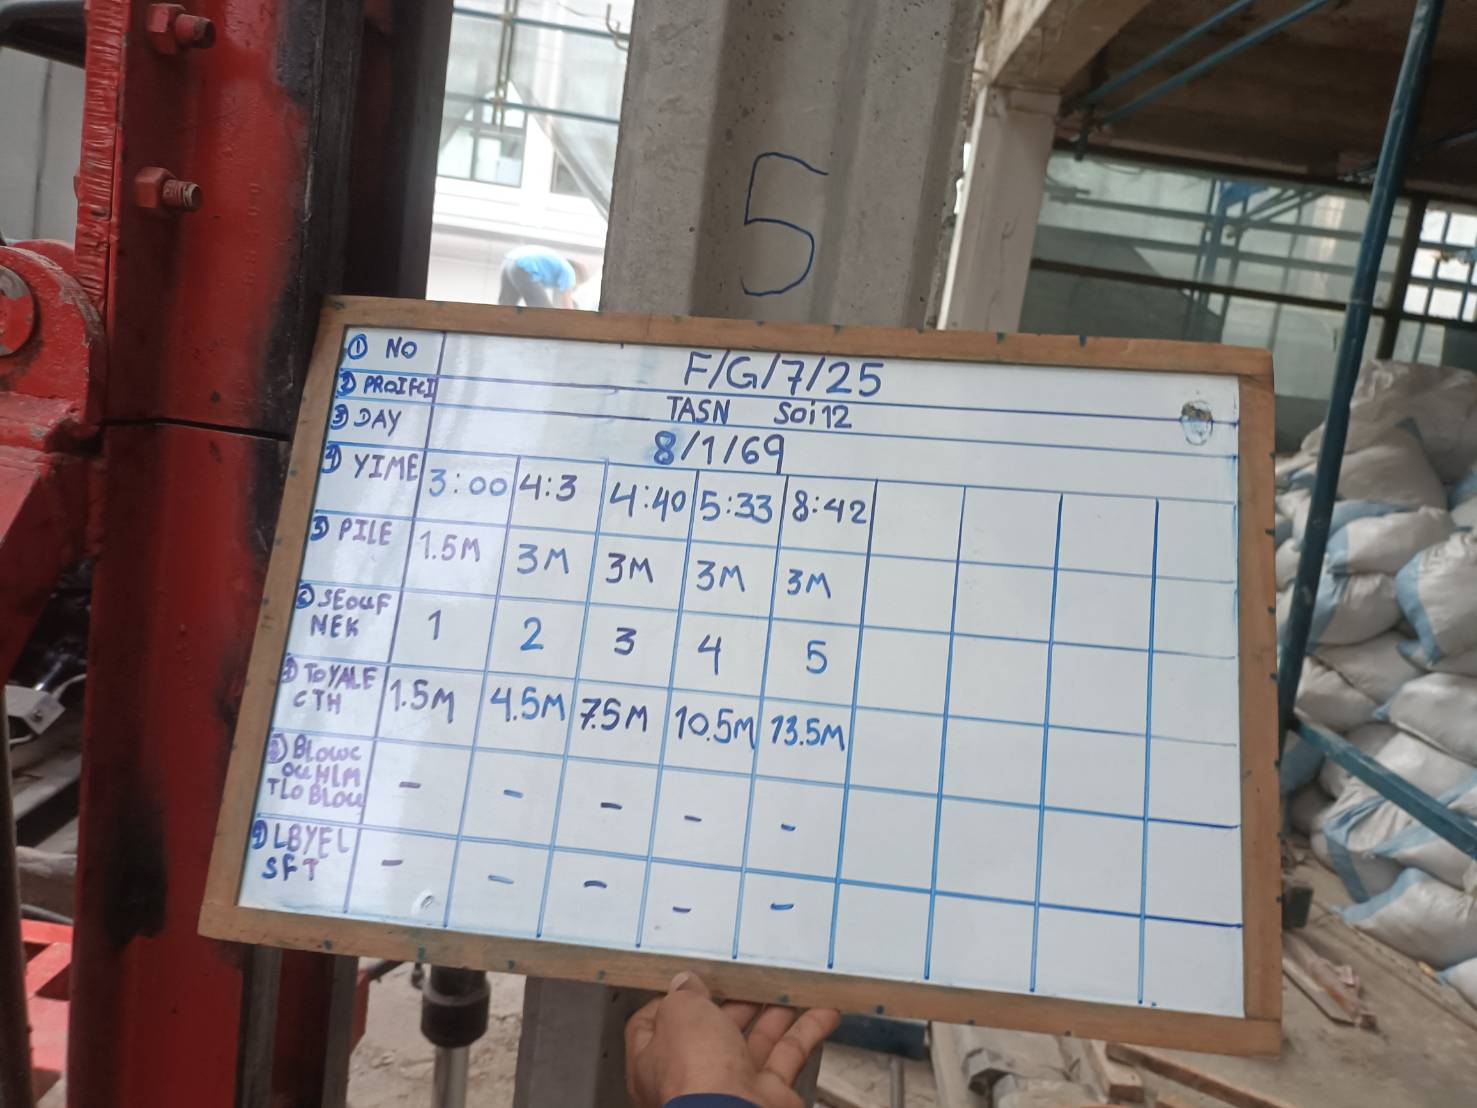 5
① NO F/G/7/25
② PROIFCI TASN Soi12
③ DAY 8/1/69
④ YIME 3:00 4:3 4:40 5:33 8:42
⑤ PILE 1.5M 3M 3M 3M 3M
⑥ SEOUF
NEK 1 2 3 4 5
⑦ TOYALE
CTH 1.5M 4.5M 7.5M 10.5M 13.5M
⑧ BLOWC
OUHLM
TLOBLOU - - - - -
⑨ LBYEL
SFT - - - - -